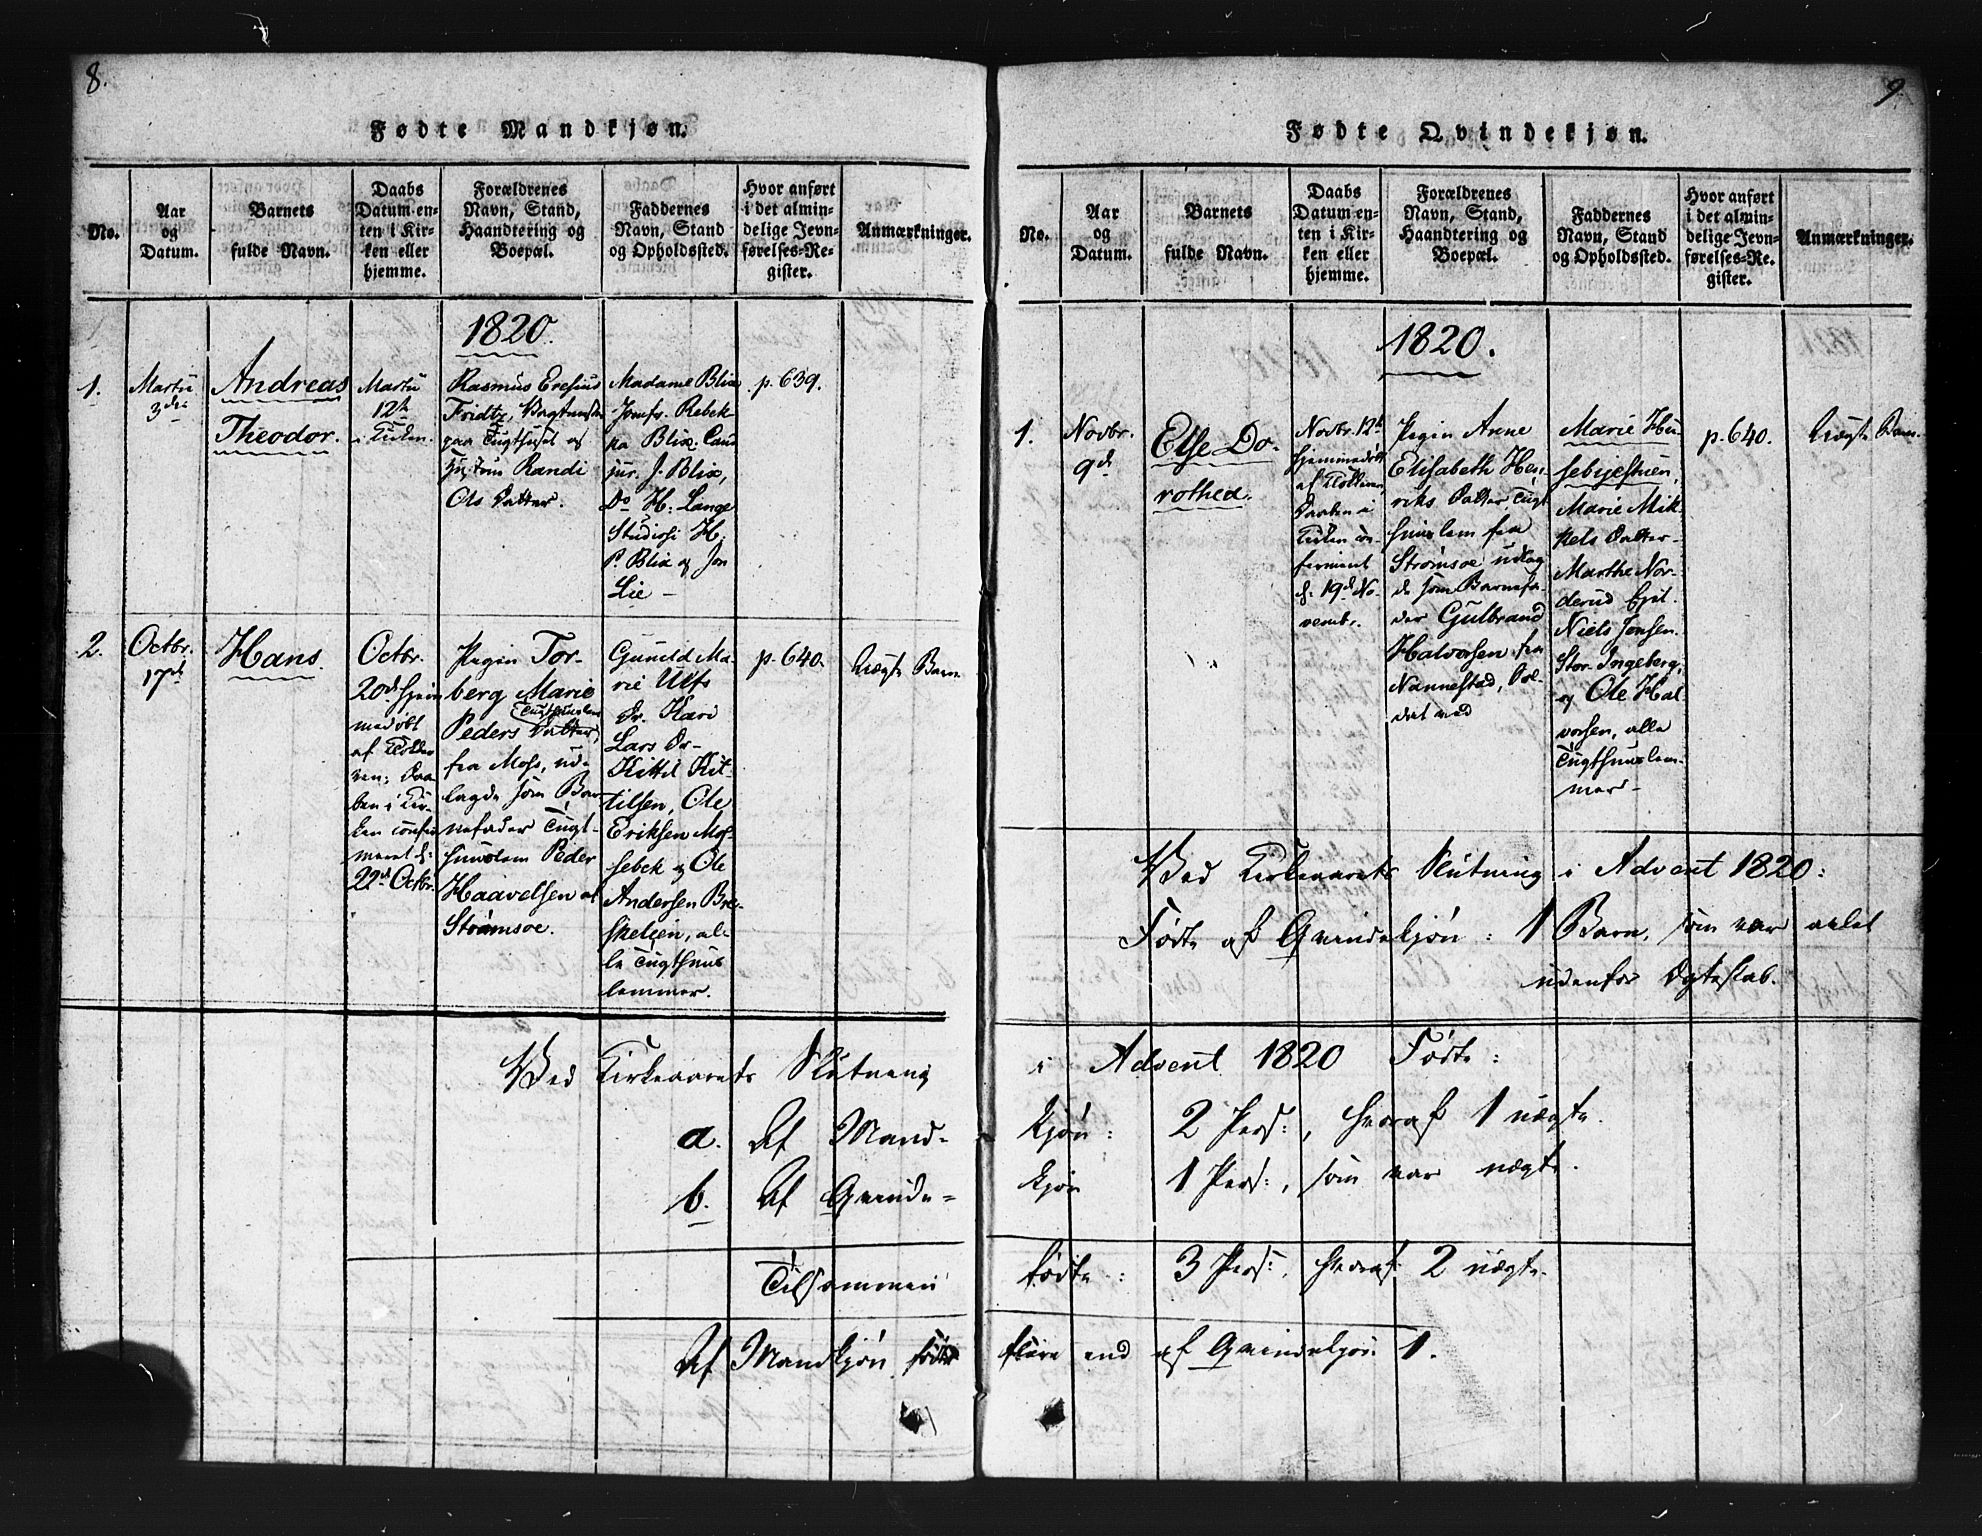 8.
Fødte Mandkjøn.
No.
Aar
og
Datum.
Barnets
fulde Navn.
Daabs
Datum en-
ten i Kir-
ken eller
hjemme.
Forældrenes
Navn, Stand,
Haandtering og
Boepæl.
Faddernes
Navn, Stand
og Opholdssted.
Hvor anført
i det almin-
delige Jevn-
førelses-Re-
gister.
Anmærkninger.
1820.
1.
Martii
3die
Andreas
Theodor.
Martii
12te
i Kirken.
Rasmus Eresius
Fridtz, Vagtmester
paa Tugthuset og
Hustrue Randi
Ols Datter.
Madame Blix
Jomfr. Rebek-
ka Blix. Cand
jur. J. Blix,
Do H. Lange
Studiosi H.
P. Blix og Jon
Lie –
p. 639.
2.
Octbr.
17de
Hans.
Octbr.
20de hjem
medøbt
af Klokke
ren; Daa
ben i Kir-
ken confir
meret d:
22de Octbr.
Pigen Tor-
berg Marie
Peders Datter,
Tugthuuslem
fra Moss, ud-
lagde som Bar
nefader Tugt-
huuslem Peder
Haavelsen af
Strømsoe.
Gunild Ma-
rie Ulfs
Dr. Kari
Lars Dr-
Kittil Kit-
tilsen, Ole
Eriksen Mos-
sebek og Ole
Andersen Bre-
skelien, al-
le Tugthuus
lemmer.
p. 640.
Uægte Barn
Ved Kirkeaarets Slutning
a. Af Mand-
b. Af Qvinde-
Tilsammen
Af Mandkjøn fødte
9.
Fødte Qvindekjøn.
No.
Aar
og
Datum.
Barnets
fulde Navn.
Daabs
Datum en-
ten i Kir-
ken eller
hjemme.
Forældrenes
Navn, Stand,
Haandtering og
Boepæl.
Faddernes
Navn, Stand
og Opholdssted.
Hvor anført
i det almin-
delige Jevn-
førelses-Re-
gister.
Anmærkninger.
1820.
1.
Novbr.
9de
Else Do-
rothea.
Novbr. 12te
hjemmedøbt
af Klokkeren,
Daaben i
Kirken con-
firmeret
d: 19de No-
vembr.
Pigen Anne
Elisabeth Hen-
riks Datter, Tugt
huuslem fra
Strømsoe udlag
de som Barnefa-
der Gulbrand
Halvorsen fra
Nannestad, Sol-
dat ved
Marie Hu-
sebyestuen,
Marie Mik-
kels Datter-
Marthe Nor-
derud Egil.
Niels Jensen
Stor-Ingeberg,
og Ole Hal-
vorsen, alle
Tugthuuslem-
mer –
p. 640.
Uægte Barn.
Ved Kirkeaarets Slutning i Advent 1820:
Fødte af Qvindekjøn: 1 Barn, som var avlet
udenfor Ægteskab.
i Advent 1820 Fødte:
kjøn: 2 Pers:, hvoraf 1 uægte.
kjøn 1 Pers:, som var uægte.
fødte: 3 Pers:, hvoraf 2 uægte.
flere end af Qvindekjøn 1.